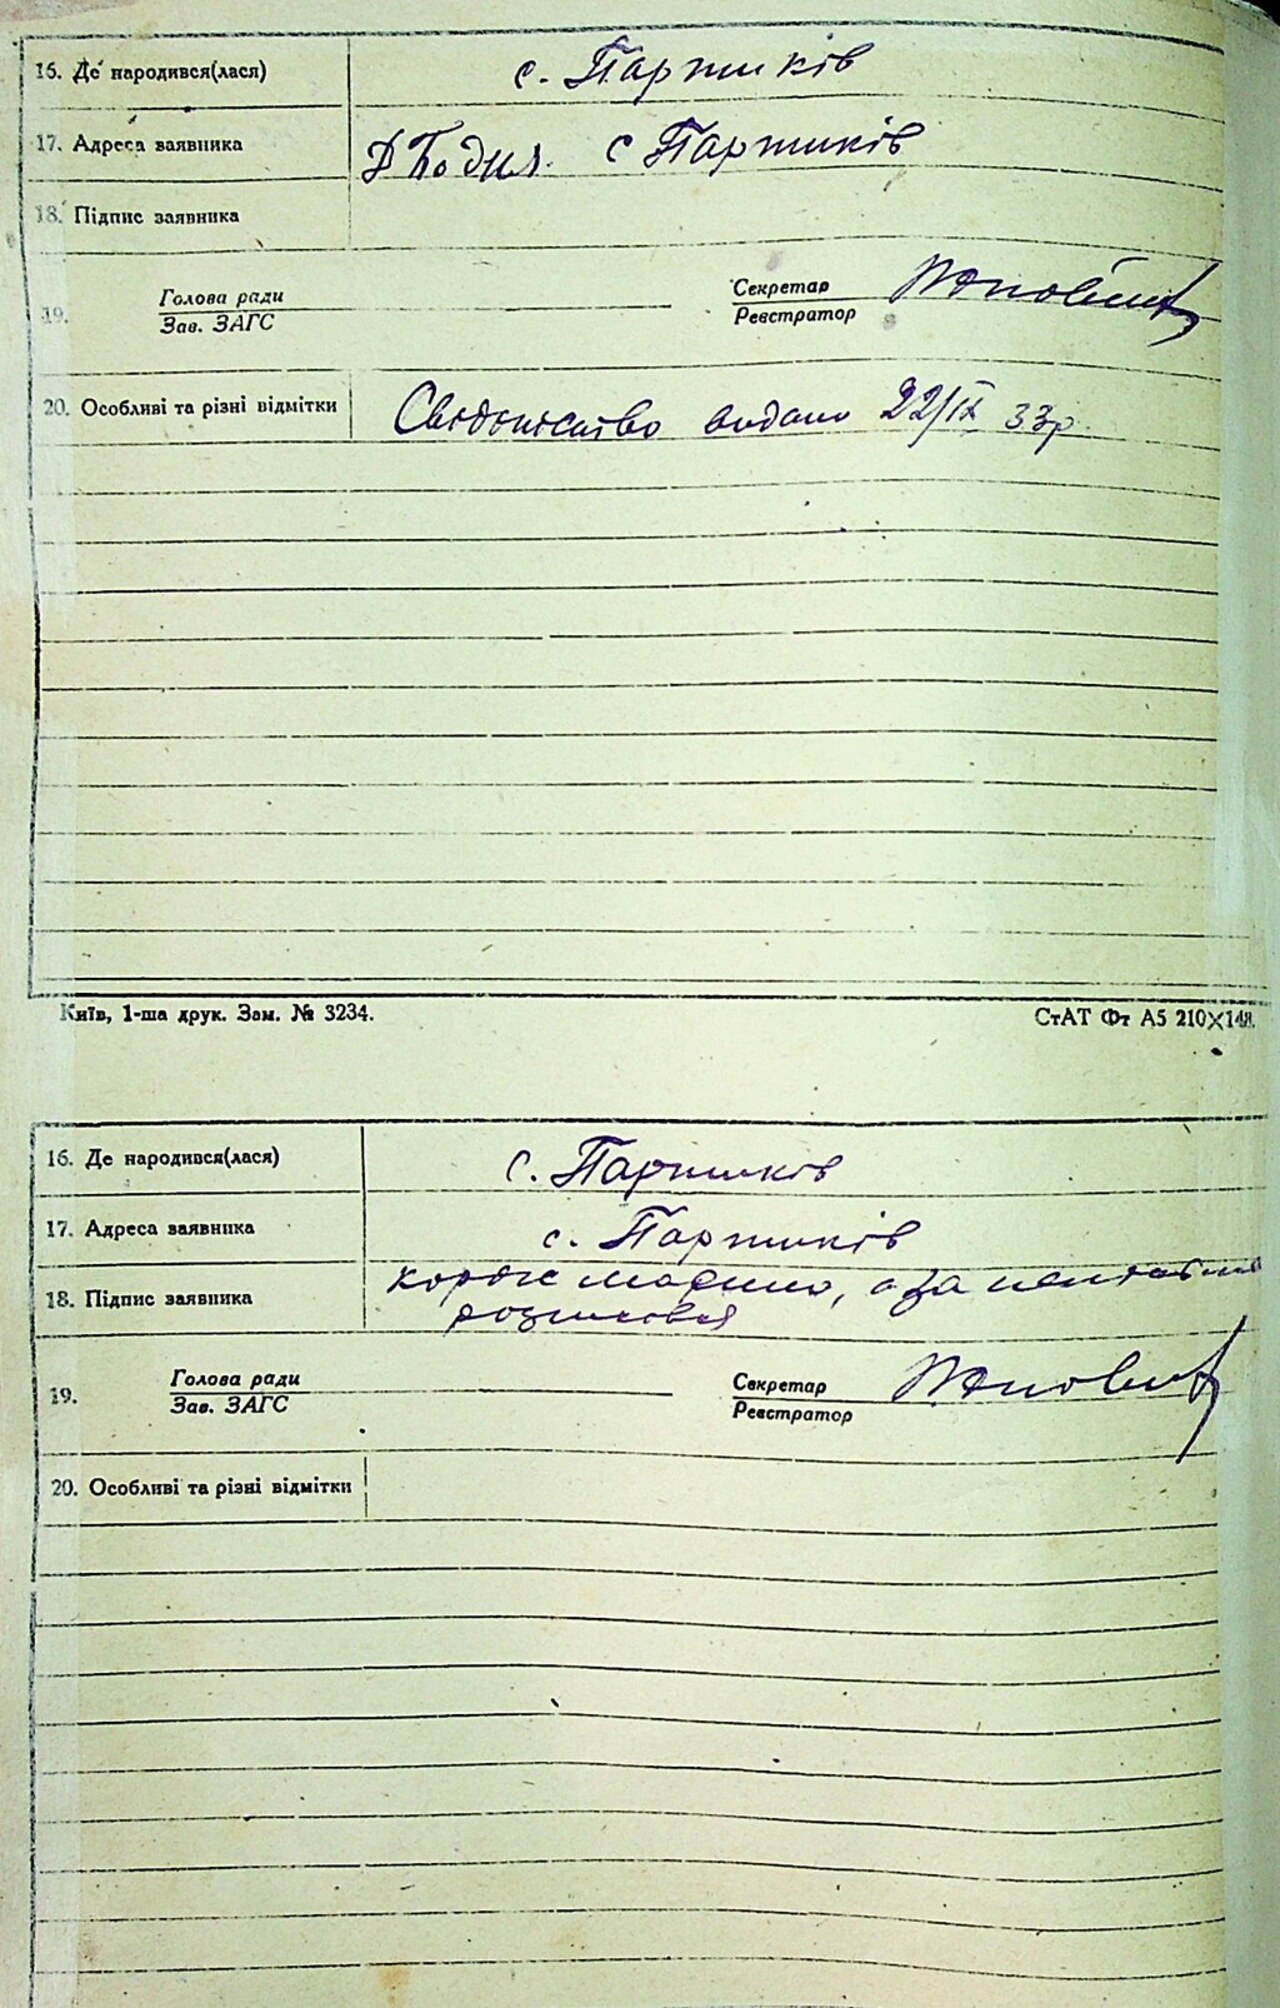 16. Де народився(лася) с. Партиків
17. Адреса заявника с Партиків
18. Підпис заявника
Голова ради Секретар
19.
Зав. ЗАГС Реєстратор
20. Особливі та різні відмітки Свідоцтво видано 22/IX 33р.
Київ, 1-ша друк. Зам. № 3234. СтАТ Фт А5 210×148.
16. Де народився(лася) с. Партиків
17. Адреса заявника с. Партиків
18. Підпис заявника
Голова ради Секретар
19.
Зав. ЗАГС Реєстратор
20. Особливі та різні відмітки